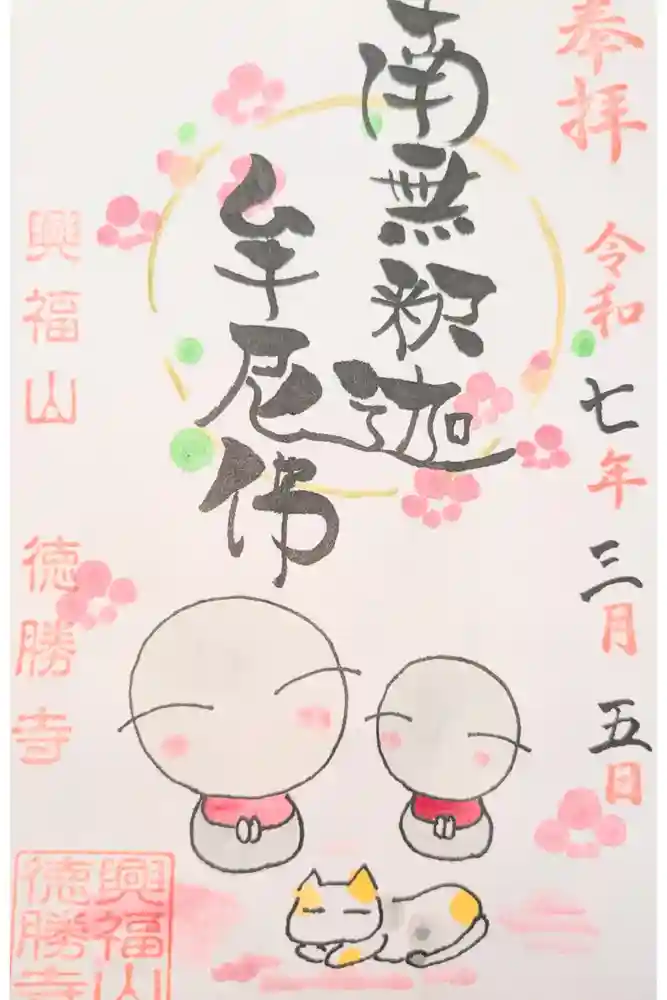 奉拝
令和七年三月五日
南無釈迦
牟尼佛
興福山 徳勝寺
興福山
徳勝寺